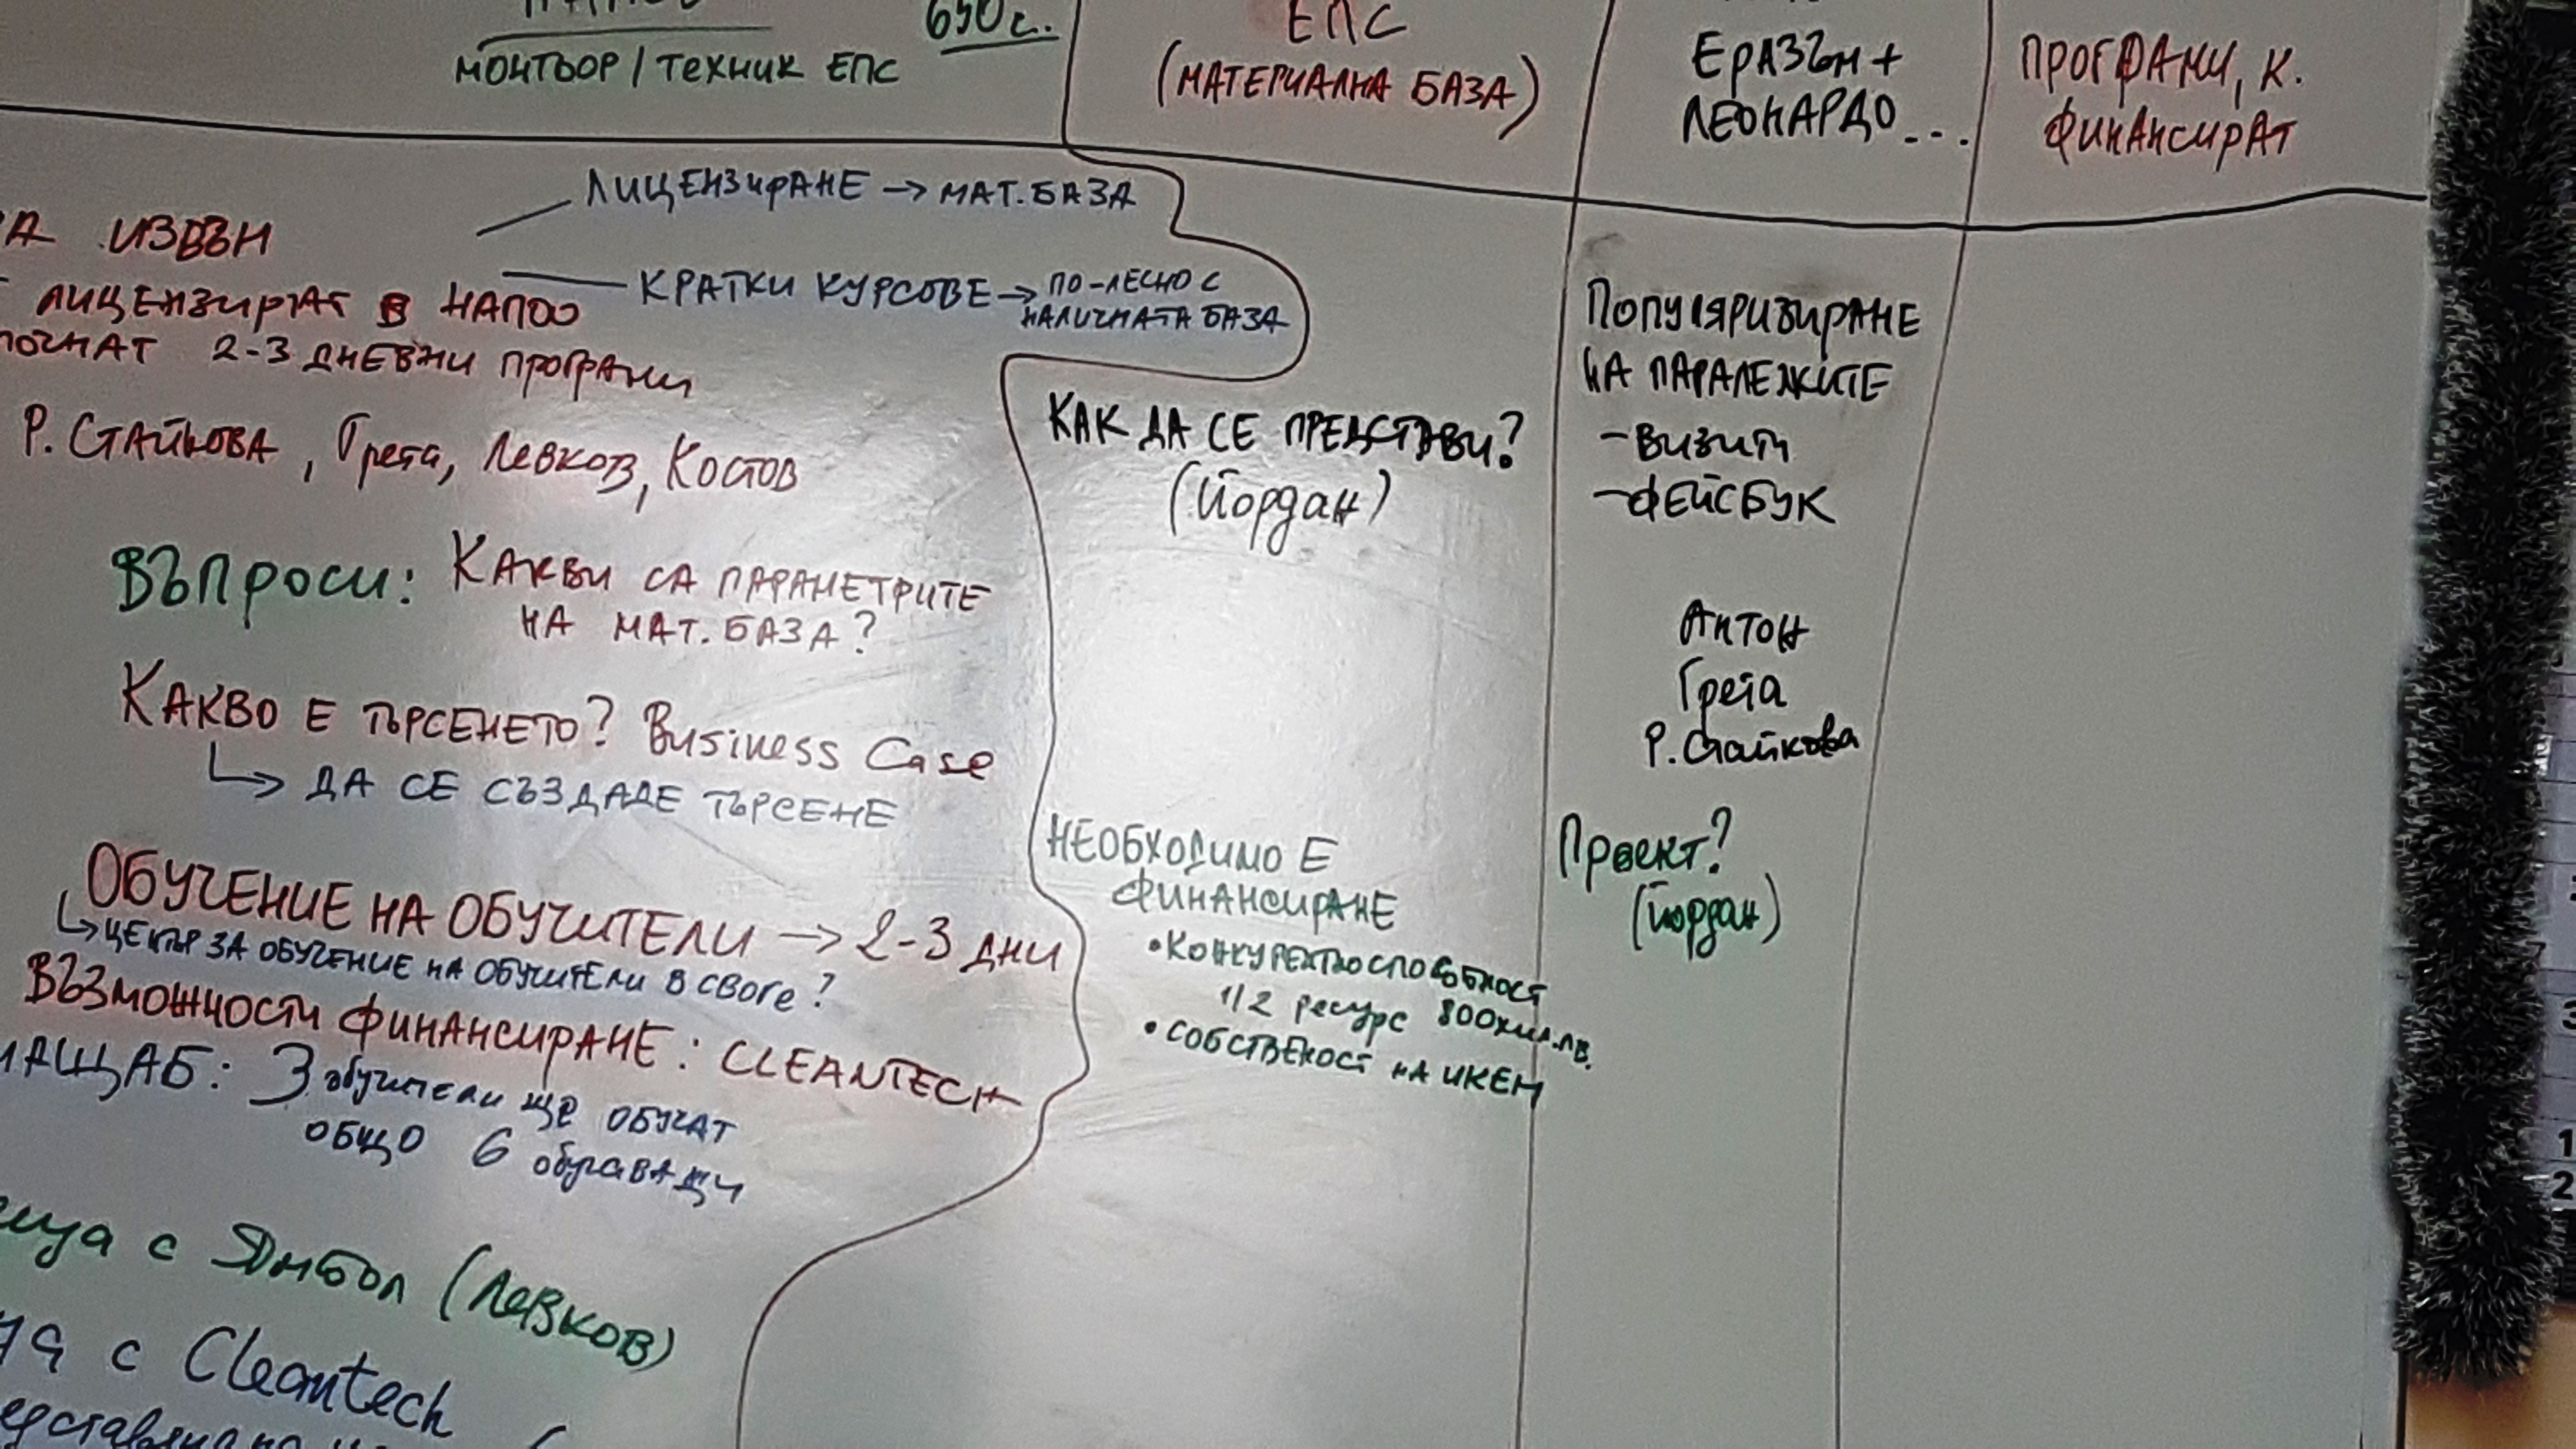 650 с.
МОНТЬОР / ТЕХНИК ЕПС
ЕПС
(МАТЕРИАЛНА БАЗА)
ЕРАЗЪМ +
ЛЕОНАРДО ...
ПРОГРАМИ, К.
ФИНАНСИРАТ
ЛИЦЕНЗИРАНЕ → МАТ. БАЗА
ИЗВЪН
КРАТКИ КУРСОВЕ → ПО-ЛЕСНО С
НАЛИЧНАТА БАЗА
ЛИЦЕНЗИРАТ В НАПОО
2-3 ДНЕВНИ ПРОГРАМИ
Р. СТАЙКОВА, Грета, Левков, Костов
ВЪПРОСИ: КАКВИ СА ПАРАМЕТРИТЕ
НА МАТ. БАЗА?
КАКВО Е ТЪРСЕНЕТО? Business Case
↳ ДА СЕ СЪЗДАДЕ ТЪРСЕНЕ
ОБУЧЕНИЕ НА ОБУЧИТЕЛИ → 2-3 ДНИ
↳ ЦЕНТЪР ЗА ОБУЧЕНИЕ НА ОБУЧИТЕЛИ В СВОГЕ?
ВЪЗМОЖНОСТИ ФИНАНСИРАНЕ: CLEANTECH
МАЩАБ: 3 обучители ще ОБУЧАТ
ОБЩО 6 обучаващи
с Ямбол (Левков)
с Cleantech
КАК ДА СЕ ПРЕДСТАВИ?
(Йордан)
НЕОБХОДИМО Е
ФИНАНСИРАНЕ
• КОНКУРЕНТНОСПОСОБНОСТ
1/2 ресурс 800 хил. лв.
• СОБСТВЕНОСТ НА ИКЕМ
ПОПУЛЯРИЗИРАНЕ
НА ПАРАЛЕЖКИТЕ
- ВИЗИТИ
- ФЕЙСБУК
Антон
Грета
Р. Стайкова
Проект?
(Йордан)
1
2